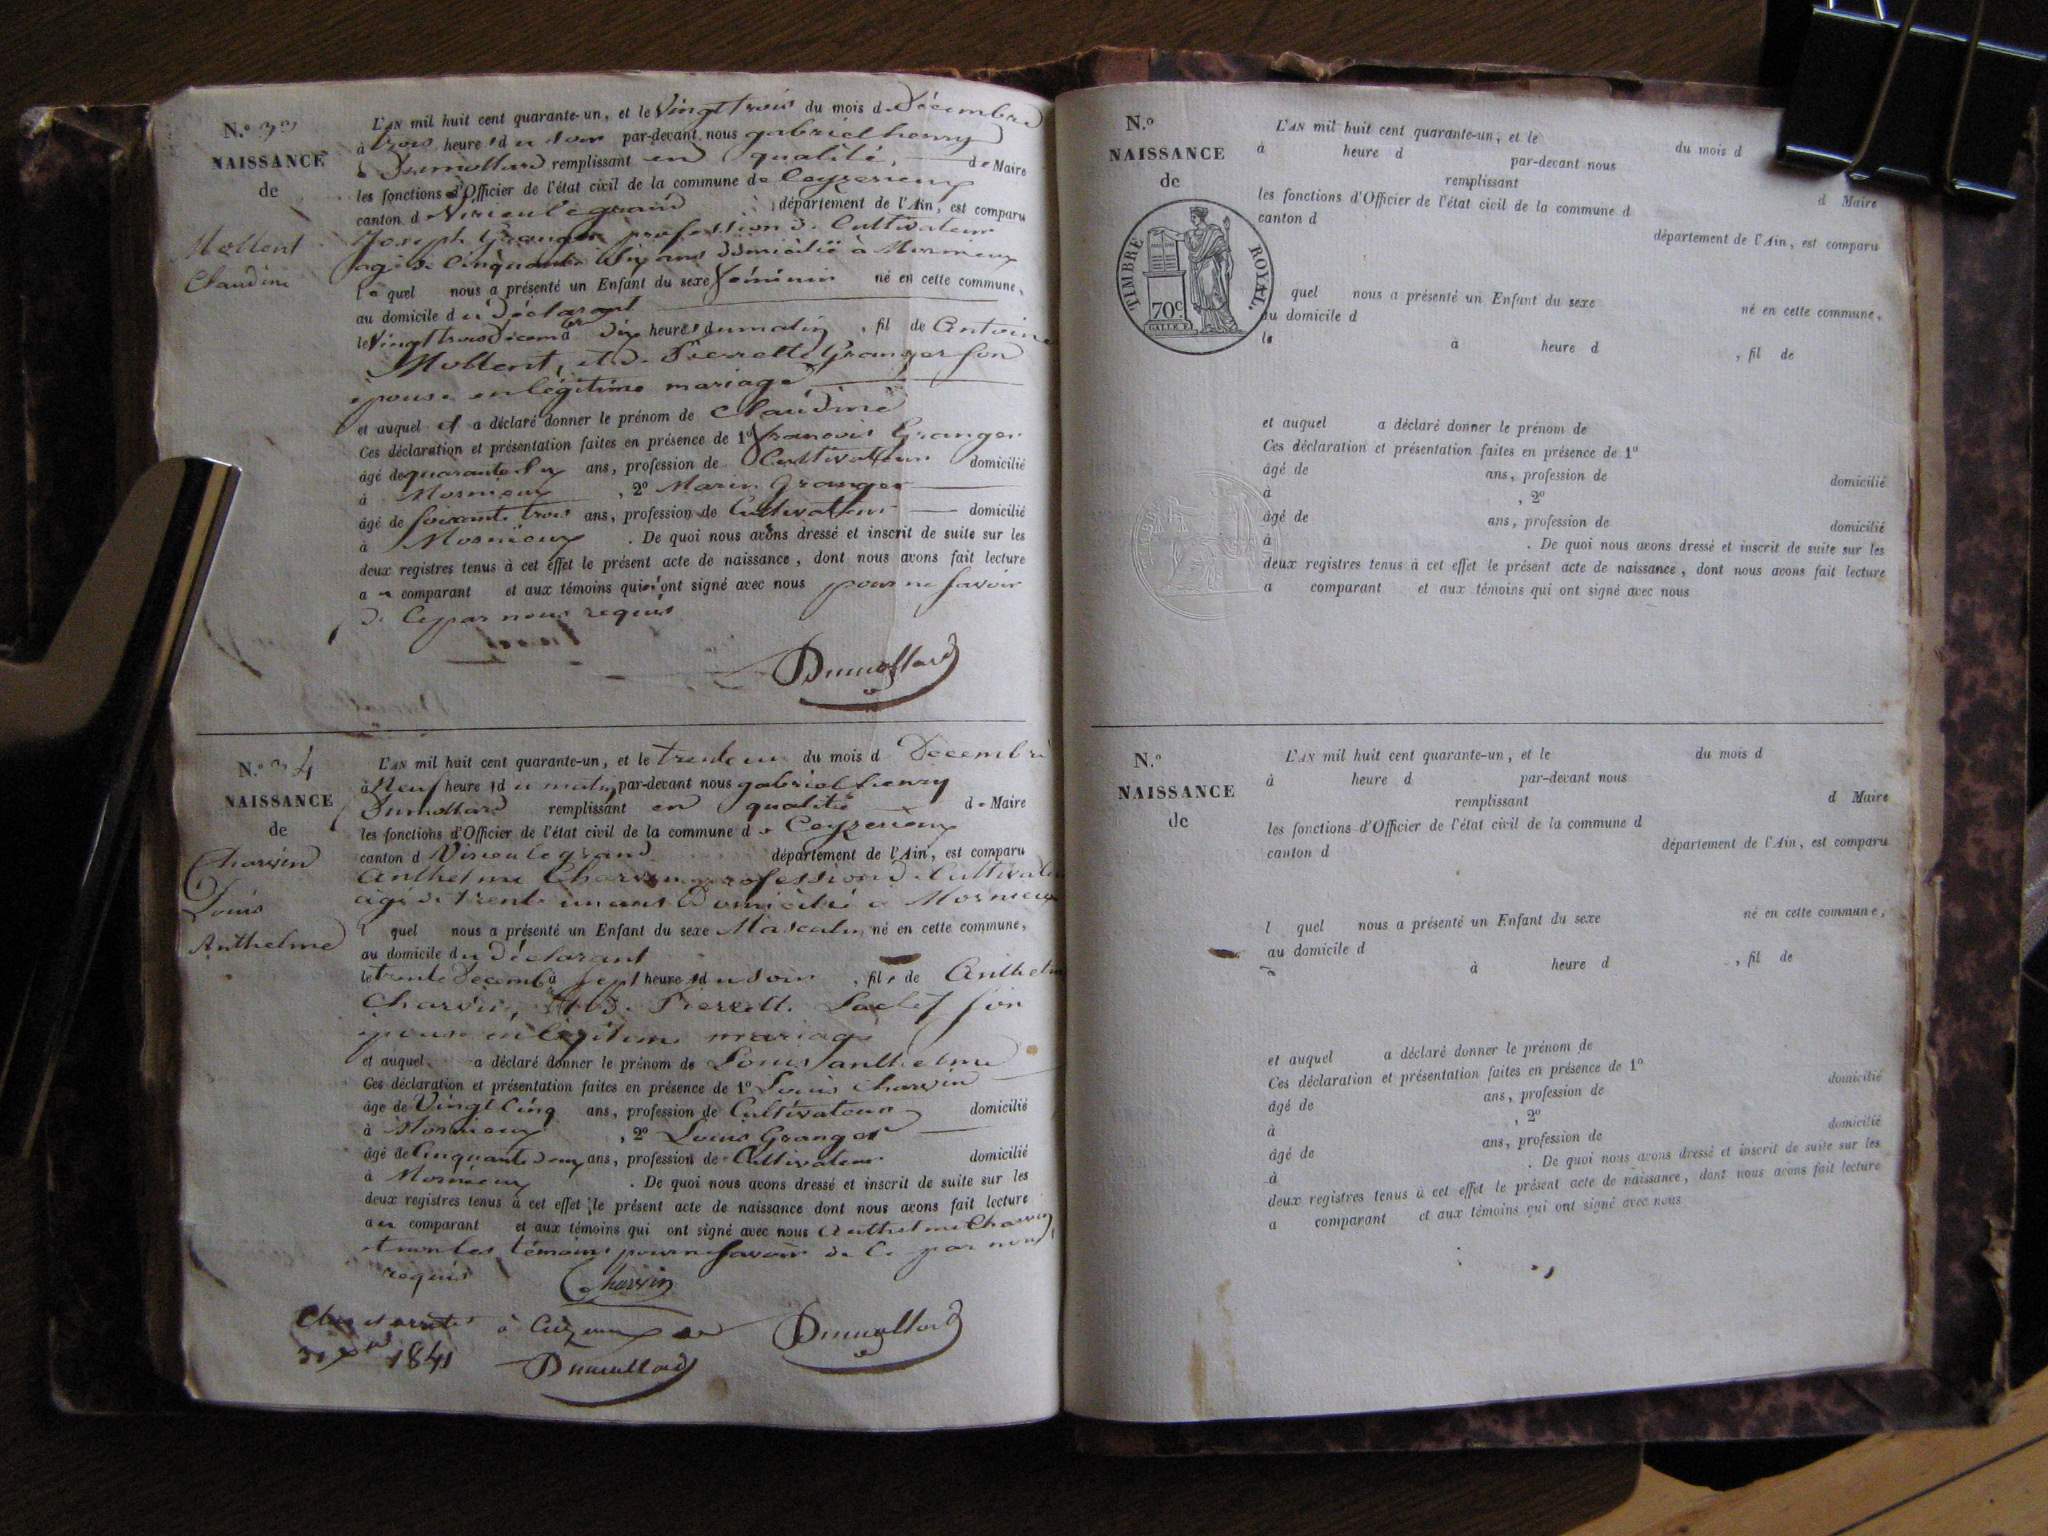 N.º 33
NAISSANCE
de
Mollent
Claudine
L'AN mil huit cent quarante-un, et le Vingt trois du mois d Décembre
à trois heures du soir par-devant nous gabriel henry
Dumollard remplissant en qualité de Maire
les fonctions d'Officier de l'état civil de la commune de Ceyzerieux
canton d Virieu le grand département de l'Ain, est comparu
Joseph Granger profession de Cultivateur
agé de Cinquante ans domicilié à Mornieux
le quel nous a présenté un Enfant du sexe féminin né en cette commune,
au domicile du déclarant
le Vingt trois Décemb à dix heures du matin, fil de Antoine
Mollent, et de Pierrette Granger son
épouse en légitime mariage
et auquel il a déclaré donner le prénom de Claudine
Ces déclaration et présentation faites en présence de 1º francois Granger
âgé de quarante ans, profession de Cultivateur domicilié
à Mornieux, 2º Marin Granger
âgé de soixante trois ans, profession de Cultivateur domicilié
à Mornieux. De quoi nous avons dressé et inscrit de suite sur les
deux registres tenus à cet effet le présent acte de naissance, dont nous avons fait lecture
au comparant et aux témoins qui n'ont signé avec nous pour ne savoir
de ce par nous requis
Dumollard
N.º 34
NAISSANCE
de
Charvin
Louis
Anthelme
L'AN mil huit cent quarante-un, et le trente un du mois d Decembre
à Neuf heures du matin par-devant nous gabriel henry
Dumollard remplissant en qualité de Maire
les fonctions d'Officier de l'état civil de la commune de Ceyzerieux
canton d Virieu le grand département de l'Ain, est comparu
Anthelme Charvin profession de Cultivateur
âgé de trente un ans Domicilié à Mornieux
l quel nous a présenté un Enfant du sexe Masculin né en cette commune,
au domicile du déclarant
le trente Decemb à sept heures du soir, fils de Anthelme
Charvin, et de Pierrette son
épouse en légitime mariage
et auquel a déclaré donner le prénom de Louis anthelme
Ces déclaration et présentation faites en présence de 1º Louis Charvin
âgé de Vingt Cinq ans, profession de Cultivateur domicilié
à Mornieux, 2º Louis Granger
âgé de Cinquante deux ans, profession de Cultivateur domicilié
à Mornieux. De quoi nous avons dressé et inscrit de suite sur les
deux registres tenus à cet effet le présent acte de naissance dont nous avons fait lecture
au comparant et aux témoins qui ont signé avec nous Anthelme Charvin
et non les témoins pour ne savoir de ce par nous
requis
Charvin
Dumollard
Clos et arrêté à Ceyzerieux le
31 Xbre 1841
Dumollard
N.º
NAISSANCE
de
TIMBRE ROYAL.
70c
L'AN mil huit cent quarante-un, et le du mois d
à heure d par-devant nous
remplissant d Maire
les fonctions d'Officier de l'état civil de la commune d
canton d département de l'Ain, est comparu
quel nous a présenté un Enfant du sexe né en cette commune,
au domicile d
le à heure d , fil de
et auquel a déclaré donner le prénom de
Ces déclaration et présentation faites en présence de 1º
âgé de ans, profession de domicilié
à , 2º
âgé de ans, profession de domicilié
à . De quoi nous avons dressé et inscrit de suite sur les
deux registres tenus à cet effet le présent acte de naissance, dont nous avons fait lecture
a comparant et aux témoins qui ont signé avec nous
N.º
NAISSANCE
de
L'AN mil huit cent quarante-un, et le du mois d
à heure d par-devant nous
remplissant d Maire
les fonctions d'Officier de l'état civil de la commune d
canton d département de l'Ain, est comparu
l quel nous a présenté un Enfant du sexe né en cette commune,
au domicile d
à heure d , fil de
et auquel a déclaré donner le prénom de
Ces déclaration et présentation faites en présence de 1º
âgé de ans, profession de domicilié
à , 2º
âgé de ans, profession de domicilié
à . De quoi nous avons dressé et inscrit de suite sur les
deux registres tenus à cet effet le présent acte de naissance, dont nous avons fait lecture
a comparant et aux témoins qui ont signé avec nous